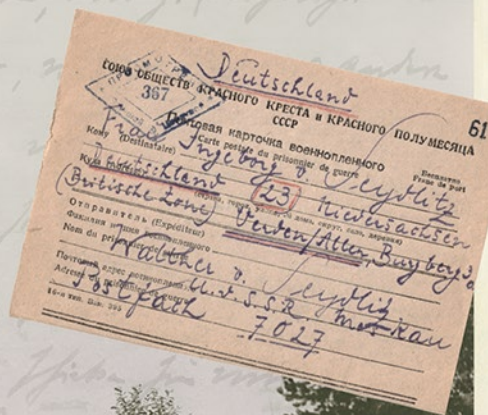 Deutschland
ПРОСМОТРЕНО
367
61
СОЮЗ ОБЩЕСТВ КРАСНОГО КРЕСТА И КРАСНОГО ПОЛУМЕСЯЦА
СССР
Почтовая карточка военнопленного
Carte postale du prisonnier de guerre
Бесплатно
Franc de port
Кому (Destinataire)
Frau Ingeborg v. Seydlitz
Куда
Deutschland 23 Niedersachsen
(Britische Zone) Verden/Aller, Burgberg
Отправитель (Expéditeur)
Фамилия и имя военнопленного
Nom du prisonnier de guerre
Walther v. Seydlitz
Почтовый адрес военнопленного
Adresse du prisonnier de guerre
U.d.S.S.R. Moskau
Postfach 7027
16-я тип. Зак.